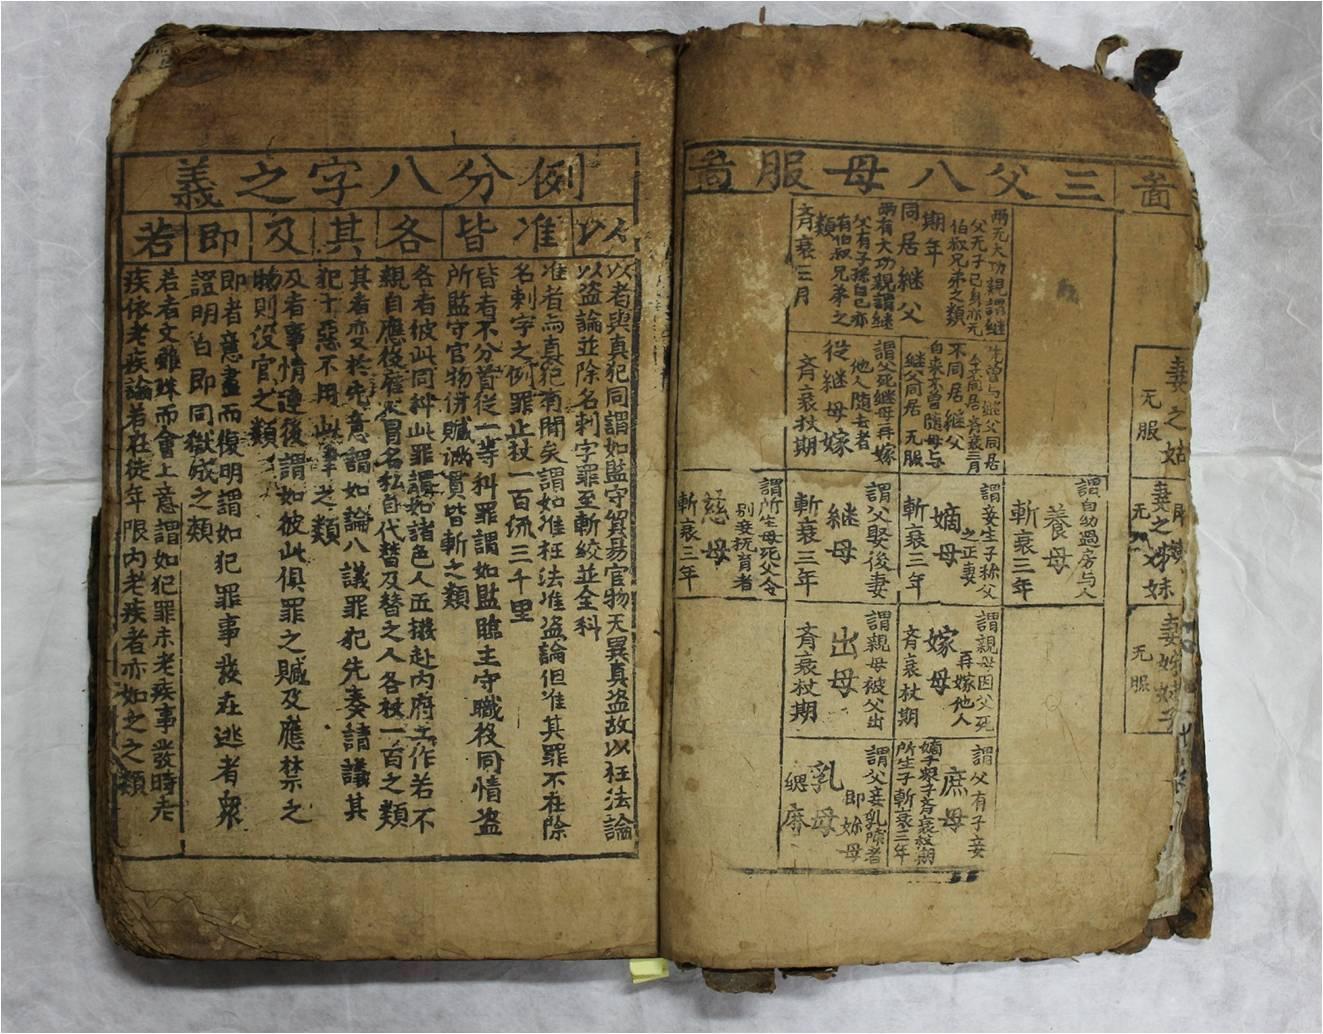 啚
妻之姑
无服
妻之姊妹
无
妻姊妹子
无服
三父八母服啚
兩无大功親謂継
父无子己身亦无
伯叔兄弟之類
期年
同居継父
兩有大功親謂継
父有子孫自己亦
有伯叔兄弟之
類
齊衰三月
先曾與継父同居
今不同居齊衰三月
不同居継父
自来不曾随母与
継父同居 无服
謂父死継母再嫁
他人随去者
從継母嫁
齊衰杖期
謂自幼過房与人
養母
斬衰三年
謂妾生子称父
之正妻
嫡母
斬衰三年
謂父娶後妻
継母
斬衰三年
謂所生母死父令
別妾撫育者
慈母
斬衰三年
謂親母因父死
再嫁他人
嫁母
齊衰杖期
謂親母被父出
出母
齊衰杖期
謂父有子妾
庶母
嫡子衆子齊衰杖期
所生子斬衰三年
謂父妾乳哺者
即妳母
乳母
緦麻
例分八字之義
以
准
皆
各
其
及
即
若
以者與真犯同謂如監守貿易官物无異真盗故以枉法論
以盗論並除名刺字罪至斬絞並全科
准者與真犯有間矣謂如准枉法准盗論但准其罪不在除
名刺字之例罪止杖一百流三千里
皆者不分首從一等科罪謂如監臨主守職役同情盗
所監守官物併贓滿貫皆斬之類
各者彼此同科此罪謂如諸色人匠撥赴内府工作若不
親自應役雇人冒名私自代替及替之人各杖一百之類
其者变於先意謂如論八議罪犯先奏請議其
犯十惡不用此律之類
及者事情連後謂如彼此俱罪之贓及應禁之
物則没官之類
即者意盡而復明謂如犯罪事發在逃者衆
證明白即同獄成之類
若者文雖殊而會上意謂如犯罪未老疾事發時老
疾依老疾論若在徒年限内老疾者亦如之之類